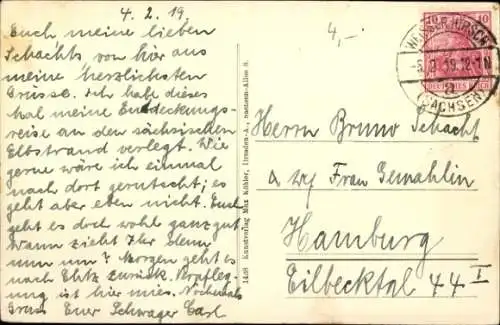 4. 2. 19
Euch meine lieben
Schachts, von hier aus
meine herzlichsten
Grüsse. Ich habe dieses
Mal meine Entdeckungs-
reise an den sächsischen
Elbstrand verlegt. Wie
gerne wäre ich einmal
nach dort gerutscht; es
geht aber eben nicht. Euch
geht es doch wohl ganz gut.
Wann zieht Ihr denn
nun um? Morgen geht es
nach zurück. Verpfleg-
ung ist hier mies. Nochmals
Gruss Euer Schwager Carl
1426 Kunstverlag Max Köhler, Dresden-A.,
4,-
10 10
DEUTSCHES REICH
WEISSER HIRSCH
19. 12-1N
(SACHSEN)
Herrn Bruno Schacht
Frau Gemahlin
Hamburg
Eilbecktal 44 I